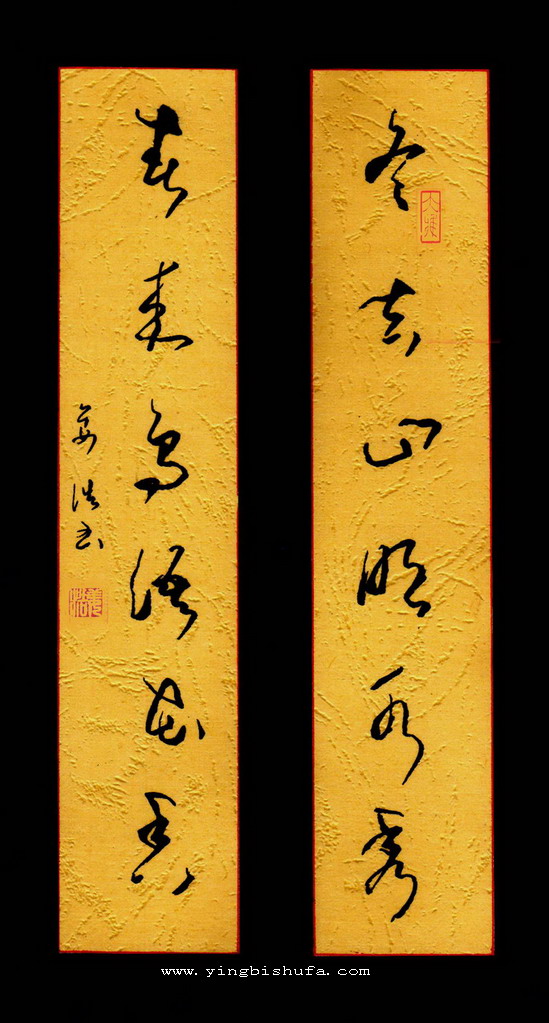 冬去山明水秀
大雅
春来鸟语花香
书
www.yingbishufa.com